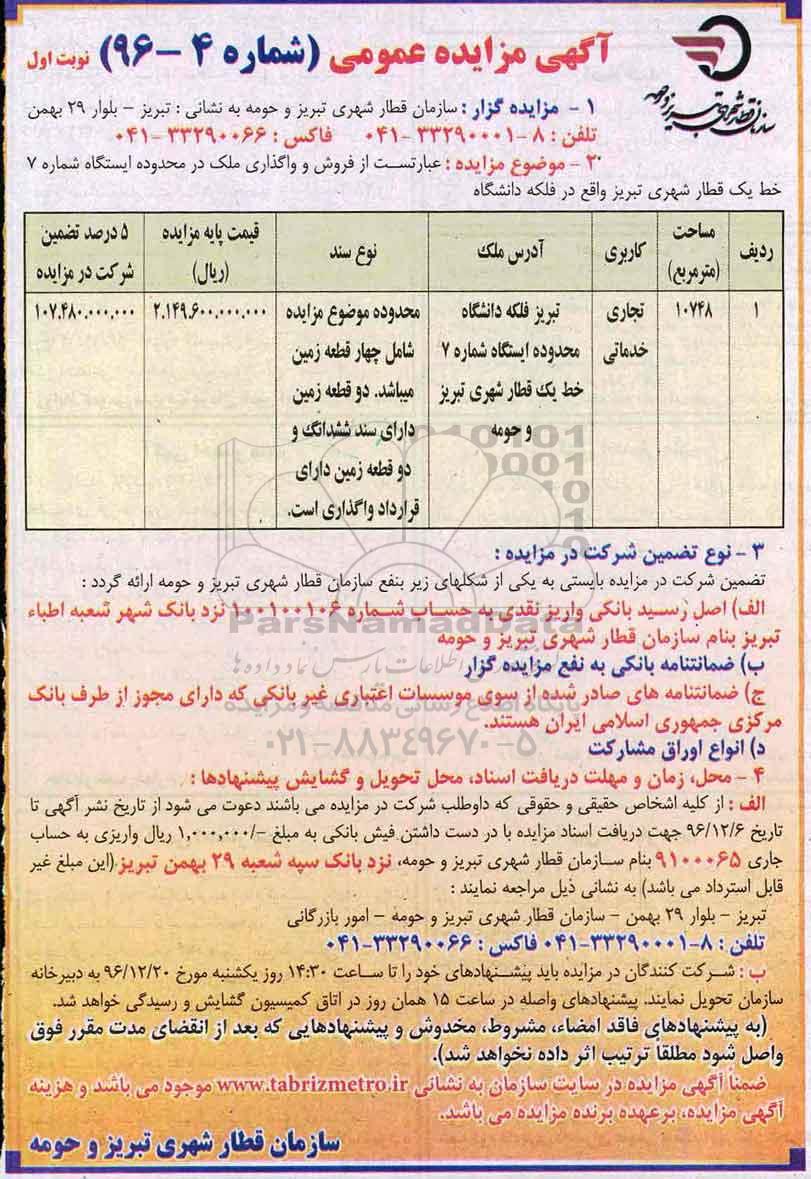 آگهی مزایده عمومی (شماره ۴ -۹۶) نوبت اول
سازمان قطار شهری تبریز و حومه
۱ - مزایده گزار : سازمان قطار شهری تبریز و حومه به نشانی : تبریز - بلوار ۲۹ بهمن
تلفن : ۸-۳۳۲۹۰۰۰۱-۰۴۱ فاکس : ۳۳۲۹۰۰۶۶-۰۴۱
۲ - موضوع مزایده : عبارتست از فروش و واگذاری ملک در محدوده ایستگاه شماره ۷
خط یک قطار شهری تبریز واقع در فلکه دانشگاه
ردیف | مساحت (مترمربع) | کاربری | آدرس ملک | نوع سند | قیمت پایه مزایده (ریال) | ۵ درصد تضمین شرکت در مزایده
۱ | ۱۰۷۴۸ | تجاری خدماتی | تبریز فلکه دانشگاه محدوده ایستگاه شماره ۷ خط یک قطار شهری تبریز و حومه | محدوده موضوع مزایده شامل چهار قطعه زمین میباشد. دو قطعه زمین دارای سند ششدانگ و دو قطعه زمین دارای قرارداد واگذاری است. | ۲.۱۴۹.۶۰۰.۰۰۰.۰۰۰ | ۱۰۷.۴۸۰.۰۰۰.۰۰۰
۳ - نوع تضمین شرکت در مزایده :
تضمین شرکت در مزایده بایستی به یکی از شکلهای زیر بنفع سازمان قطار شهری تبریز و حومه ارائه گردد :
الف) اصل رسید بانکی واریز نقدی به حساب شماره ۱۰۰۱۰۰۱۰۶ نزد بانک شهر شعبه اطباء
تبریز بنام سازمان قطار شهری تبریز و حومه
ParsNamadData
ب) ضمانتنامه بانکی به نفع مزایده گزار
ج) ضمانتنامه های صادر شده از سوی موسسات اعتباری غیر بانکی که دارای مجوز از طرف بانک
مرکزی جمهوری اسلامی ایران هستند.
۰۲۱-۸۸۳۴۹۶۷۰-۵
د) انواع اوراق مشارکت
۴ - محل، زمان و مهلت دریافت اسناد، محل تحویل و گشایش پیشنهادها :
الف : از کلیه اشخاص حقیقی و حقوقی که داوطلب شرکت در مزایده می باشند دعوت می شود از تاریخ نشر آگهی تا
تاریخ ۹۶/۱۲/۶ جهت دریافت اسناد مزایده با در دست داشتن فیش بانکی به مبلغ -/۱,۰۰۰,۰۰۰ ریال واریزی به حساب
جاری ۹۱۰۰۰۶۵ بنام سازمان قطار شهری تبریز و حومه، نزد بانک سپه شعبه ۲۹ بهمن تبریز (این مبلغ غیر
قابل استرداد می باشد) به نشانی ذیل مراجعه نمایند :
تبریز - بلوار ۲۹ بهمن - سازمان قطار شهری تبریز و حومه - امور بازرگانی
تلفن : ۸-۳۳۲۹۰۰۰۱-۰۴۱ فاکس : ۳۳۲۹۰۰۶۶-۰۴۱
ب : شرکت کنندگان در مزایده باید پیشنهادهای خود را تا ساعت ۱۴:۳۰ روز یکشنبه مورخ ۹۶/۱۲/۲۰ به دبیرخانه
سازمان تحویل نمایند. پیشنهادهای واصله در ساعت ۱۵ همان روز در اتاق کمیسیون گشایش و رسیدگی خواهد شد.
(به پیشنهادهای فاقد امضاء، مشروط، مخدوش و پیشنهادهایی که بعد از انقضای مدت مقرر فوق
واصل شود مطلقاً ترتیب اثر داده نخواهد شد).
ضمناً آگهی مزایده در سایت سازمان به نشانی www.tabrizmetro.ir موجود می باشد و هزینه
آگهی مزایده، برعهده برنده مزایده می باشد.
سازمان قطار شهری تبریز و حومه